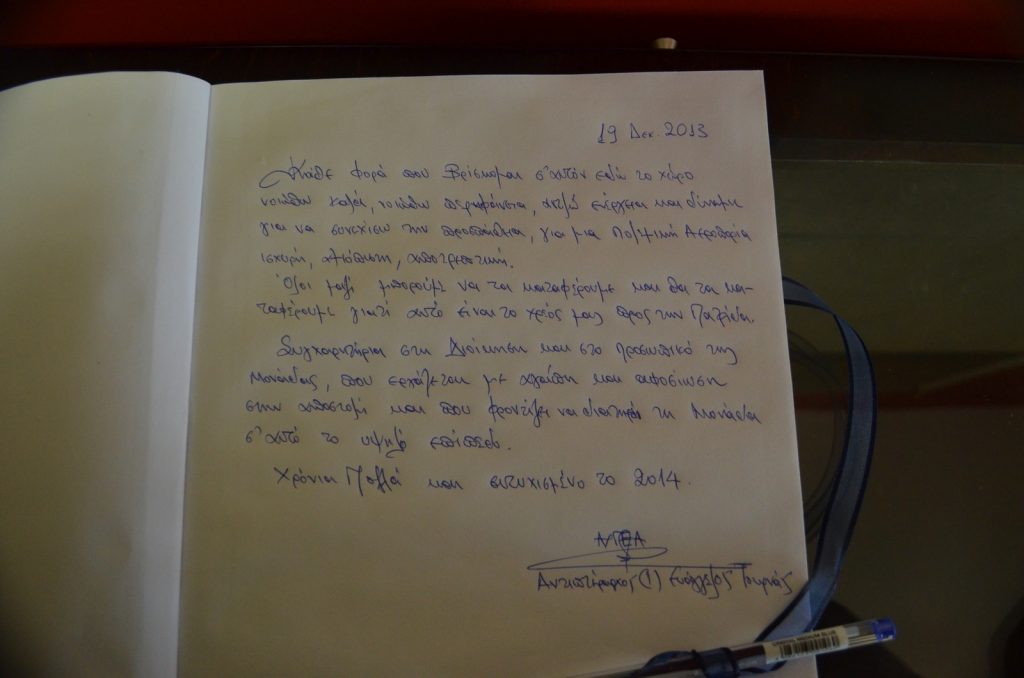 19 Δεκ. 2013
Κάθε φορά που βρίσκομαι σ' αυτόν εδώ το χώρο
νοιώθω καλά, νοιώθω περηφάνεια, αντλώ ενέργεια και δύναμη
για να συνεχίσω την προσπάθεια, για μια Πολεμική Αεροπορία
ισχυρή, αξιόπιστη, αποτρεπτική.
Όλοι μαζί μπορούμε να τα καταφέρουμε και θα τα κα-
ταφέρουμε γιατί αυτό είναι το χρέος μας προς την Πατρίδα.
Συγχαρητήρια στη Διοίκηση και στο Προσωπικό της
Μονάδας, που εργάζεται με αγάπη και αφοσίωση
στην αποστολή και που φροντίζει να διατηρεί τη Μονάδα
σ' αυτό το υψηλό επίπεδο.
Χρόνια Πολλά και ευτυχισμένο το 2014.
Αντιπτέραρχος (Ι) Ευάγγελος Τουρνάς